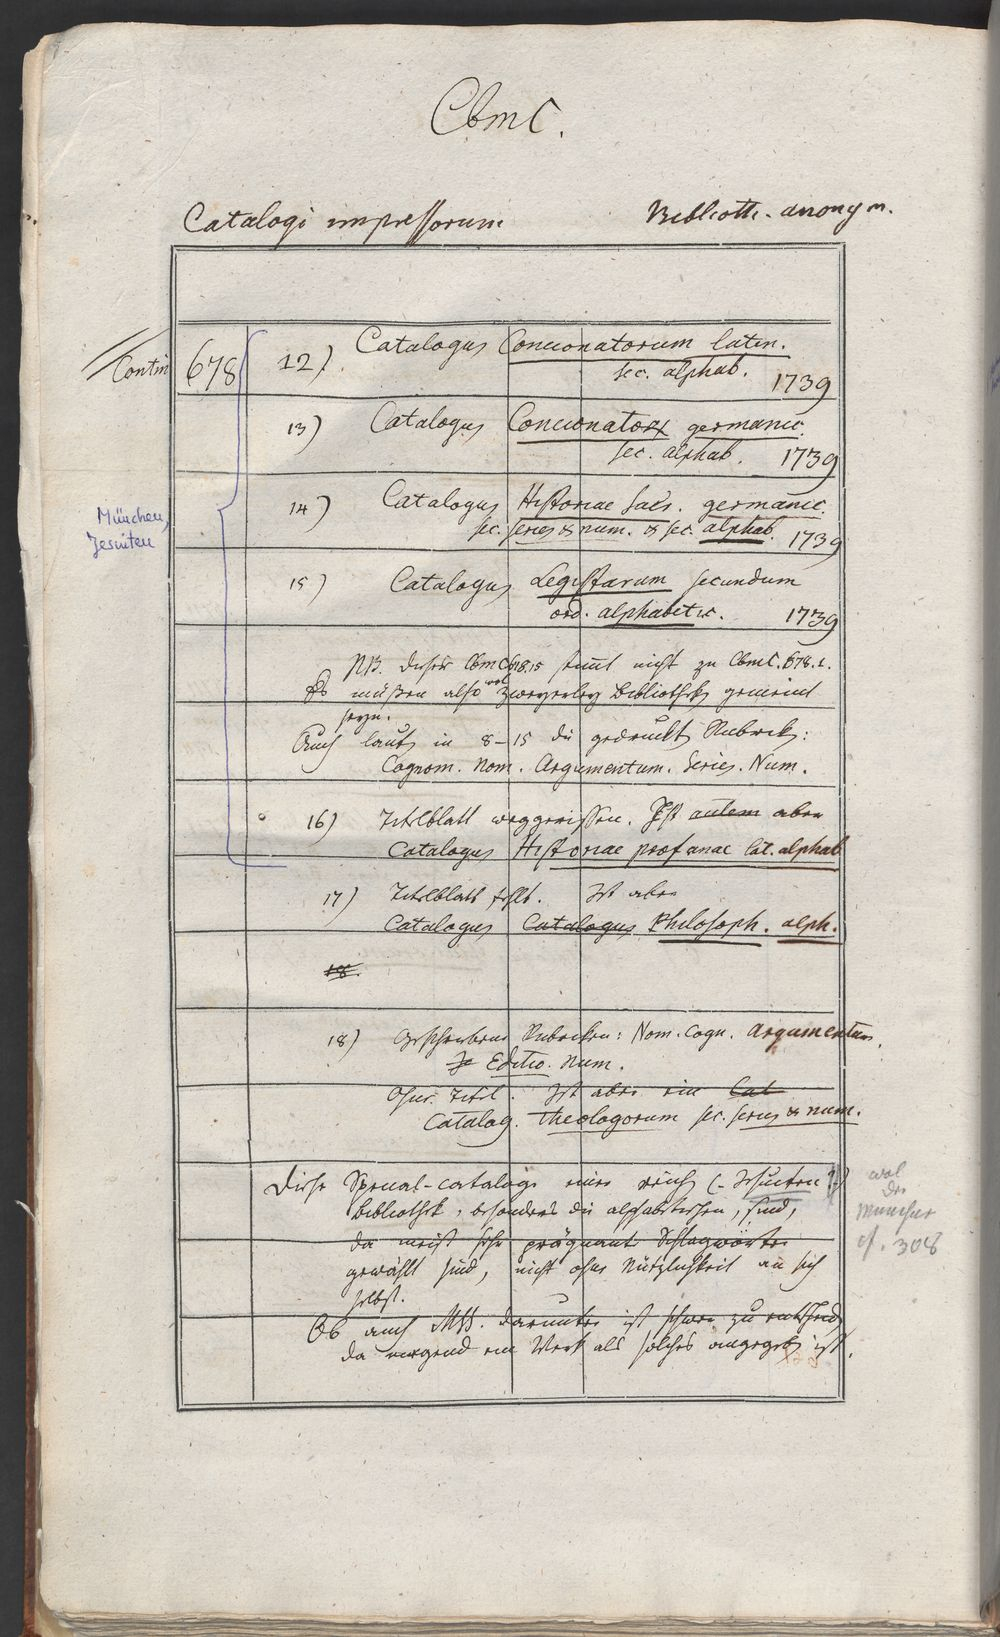 CbmC.
Catalogi impressorum Biblioth. anonym.
Contin 678 12) Catalogus Concionatorum latin.
sec. alphab. 1739
13) Catalogus Concionator germanic.
sec. alphab. 1739
14) Catalogus Historiae Sacr. germanic.
sec. series & num. & sec. alphab. 1739
München,
Jesuiten
15) Catalogus Legistarum secundum
ord. alphabetic. 1739
NB. Dieser CbmC 678.15 stimt nicht zu CbmC. 678.1.
Es müßen also wol zweyerley Bibliothek gemeint
seyn.
Auch laut in 8-15 die gedruckt Rubrick:
Cognom. Nom. Argumentum. Series. Num.
16) Titelblatt weggerissen. Ist autem aber
Catalogus Historiae profanae lat. alphab.
17) Titelblatt fehlt. Ist aber
Catalogus Catalogus Philosoph. alph.
18.
18) Geschriebene Rubriken: Nom. Cogn. Argumentum.
Editio. Num.
Ohne Titel. Ist aber ein Cat
Catalog. Theologorum sec. series & num.
Diese Special-catalogi einer reich (- Jesuiten?-)
Bibliothek, besonders die alphabetischen, sind,
da meist sehr prägnant Schlagwörter
gewählt sind, nicht ohne Nützlichkeit an sich
selbst.
wol
der
Münchner
cf. 308
Ob auch MSS. darunter ist schwer zu entscheid
da nirgend ein Werk als solches angegeb ist.